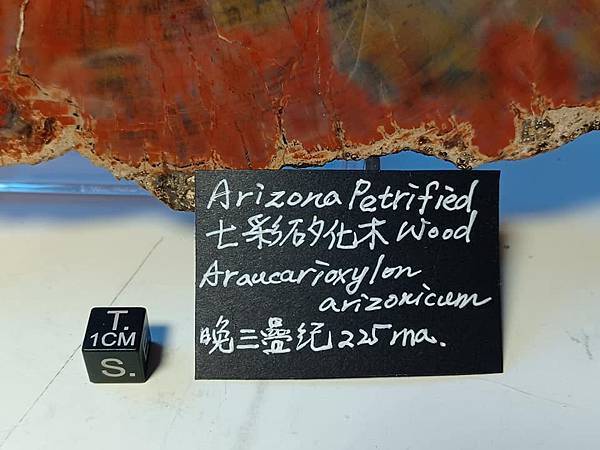 Arizona Petrified
七彩矽化木 Wood
Araucarioxylon
arizonicum
晚三疊纪 225 ma.
T.
1CM
S.